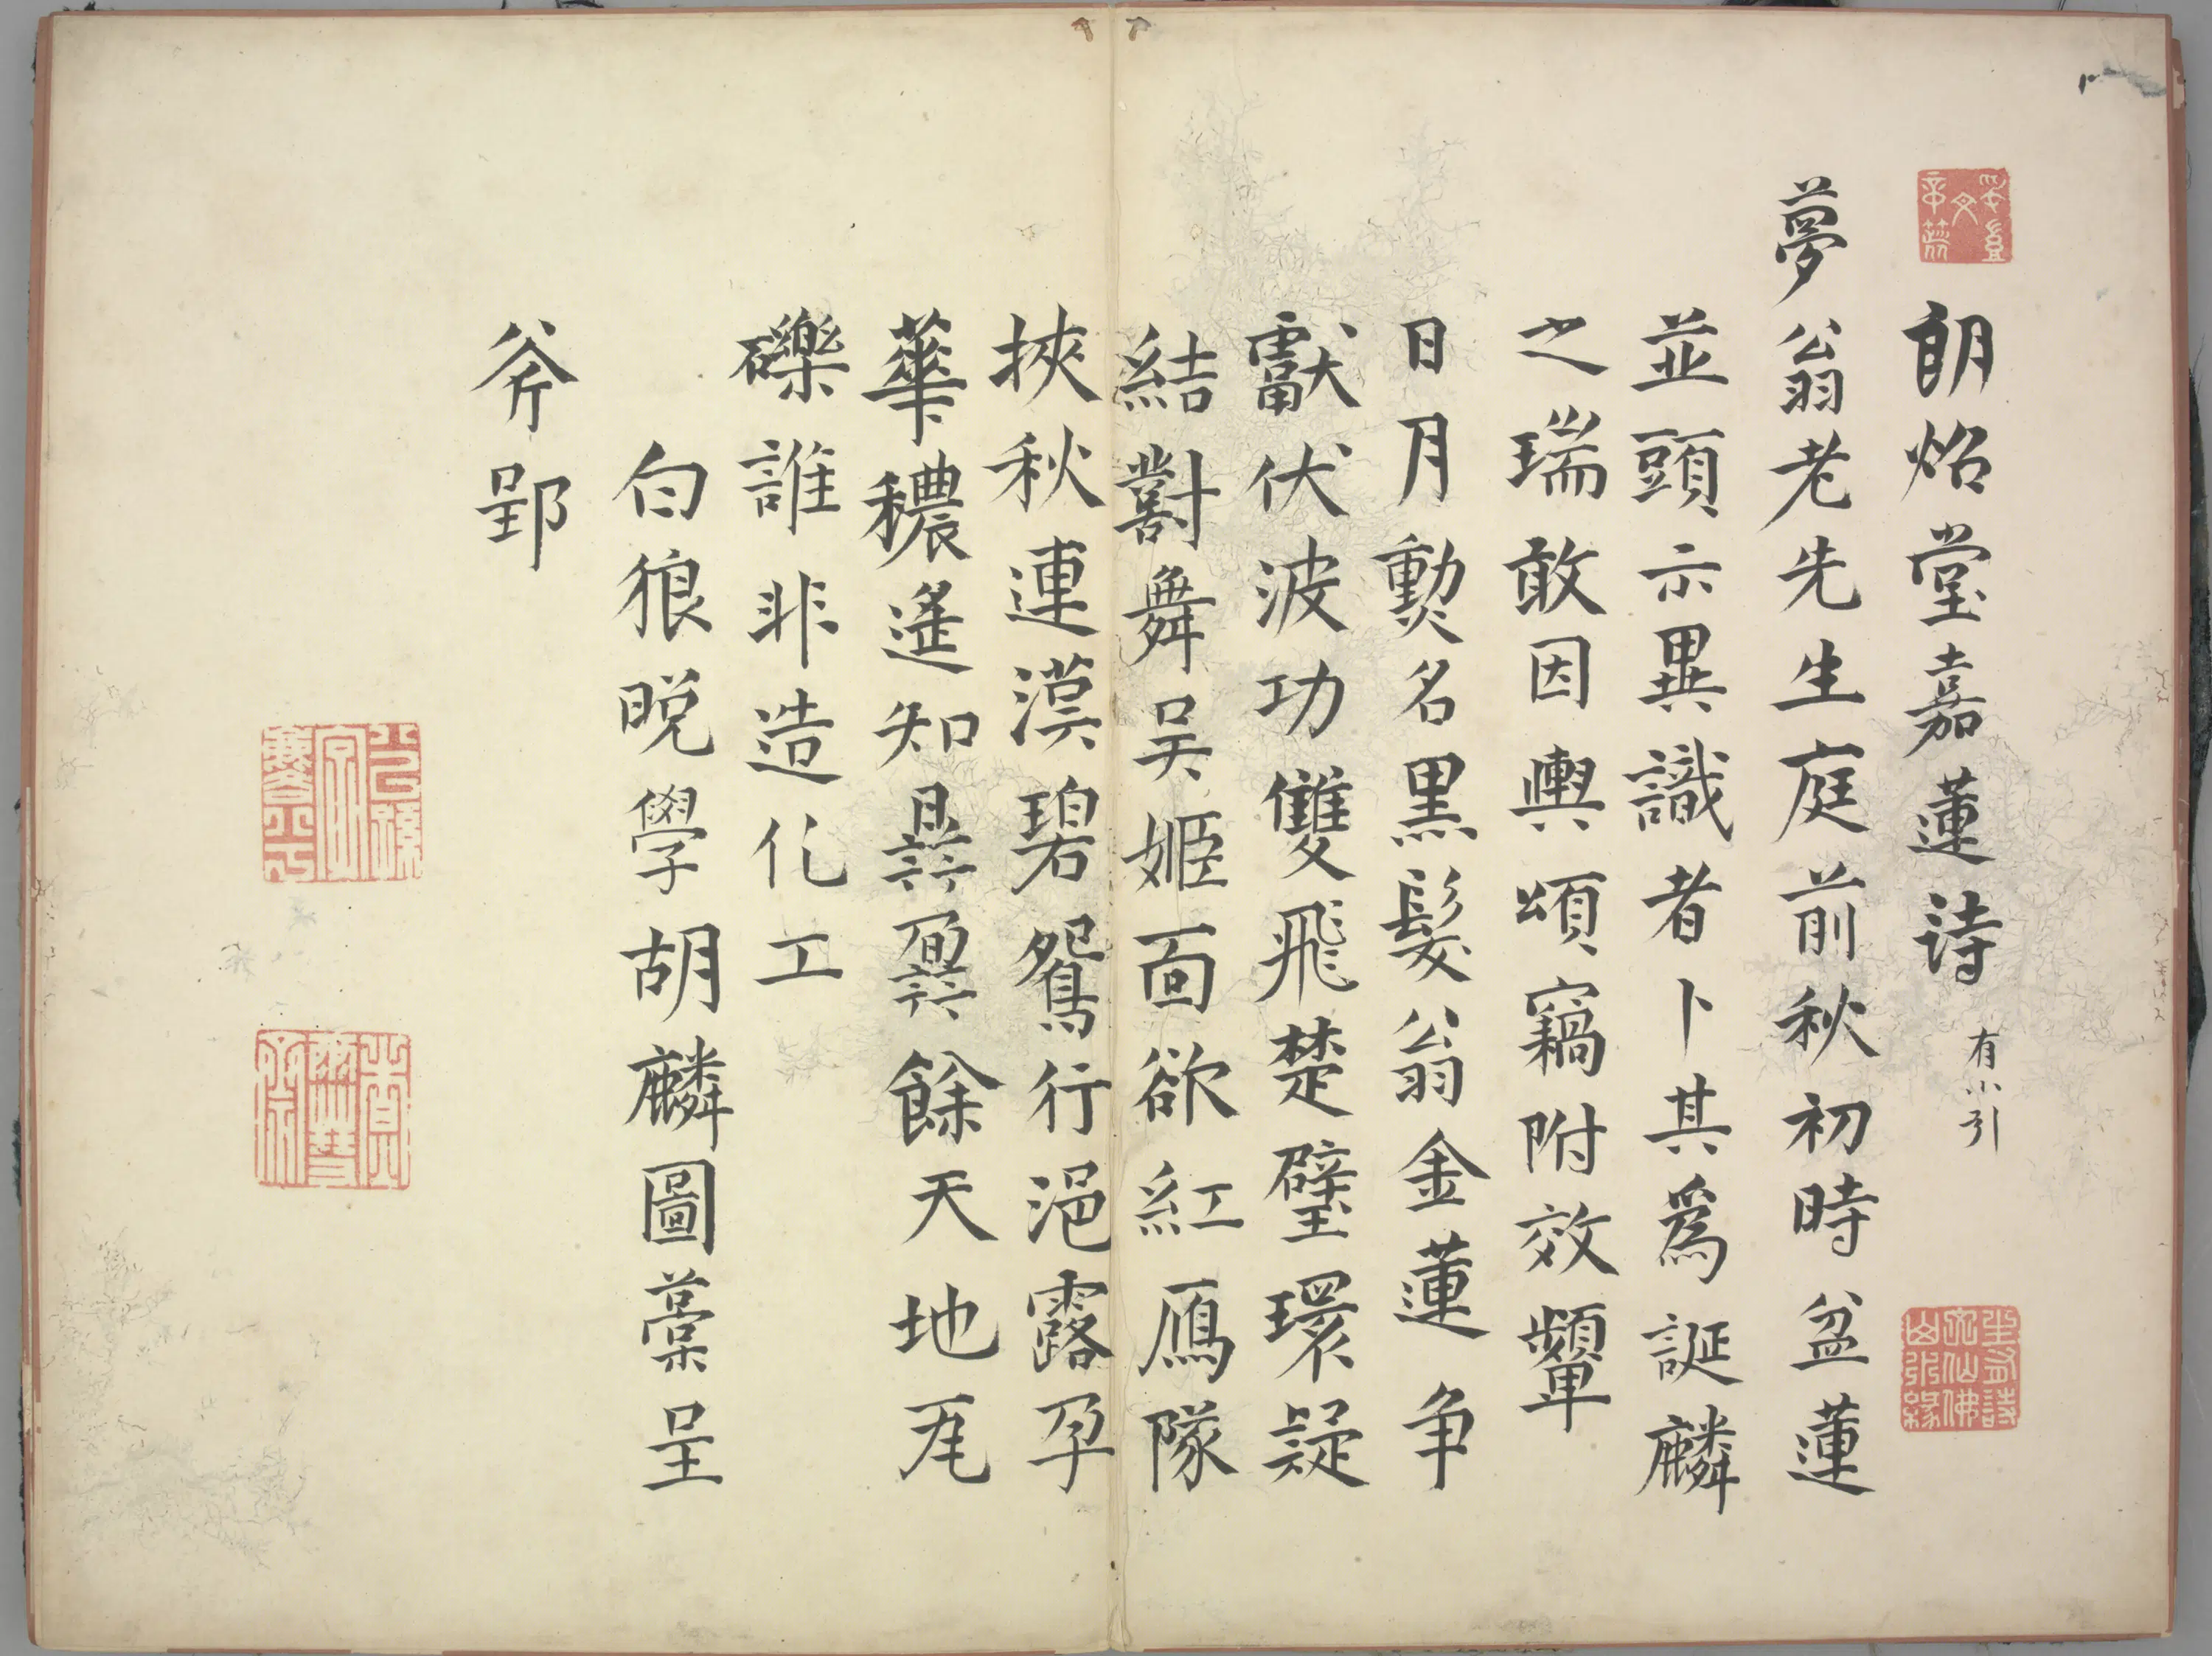 朗炤堂嘉蓮詩 有小引
夢翁老先生庭前秋初時盆蓮
並頭示異識者卜其爲誕麟
之瑞敢因輿頌竊附效顰
日月勲名黒髮翁金蓮争
獻伏波功雙飛楚璧環疑
結對舞吳姬面欲紅鴈隊
挾秋連漠碧鴛行浥露孕
華穠遙知餘天地尾
礫誰非造化工
白狼晚學胡麟圖藁呈
斧郢